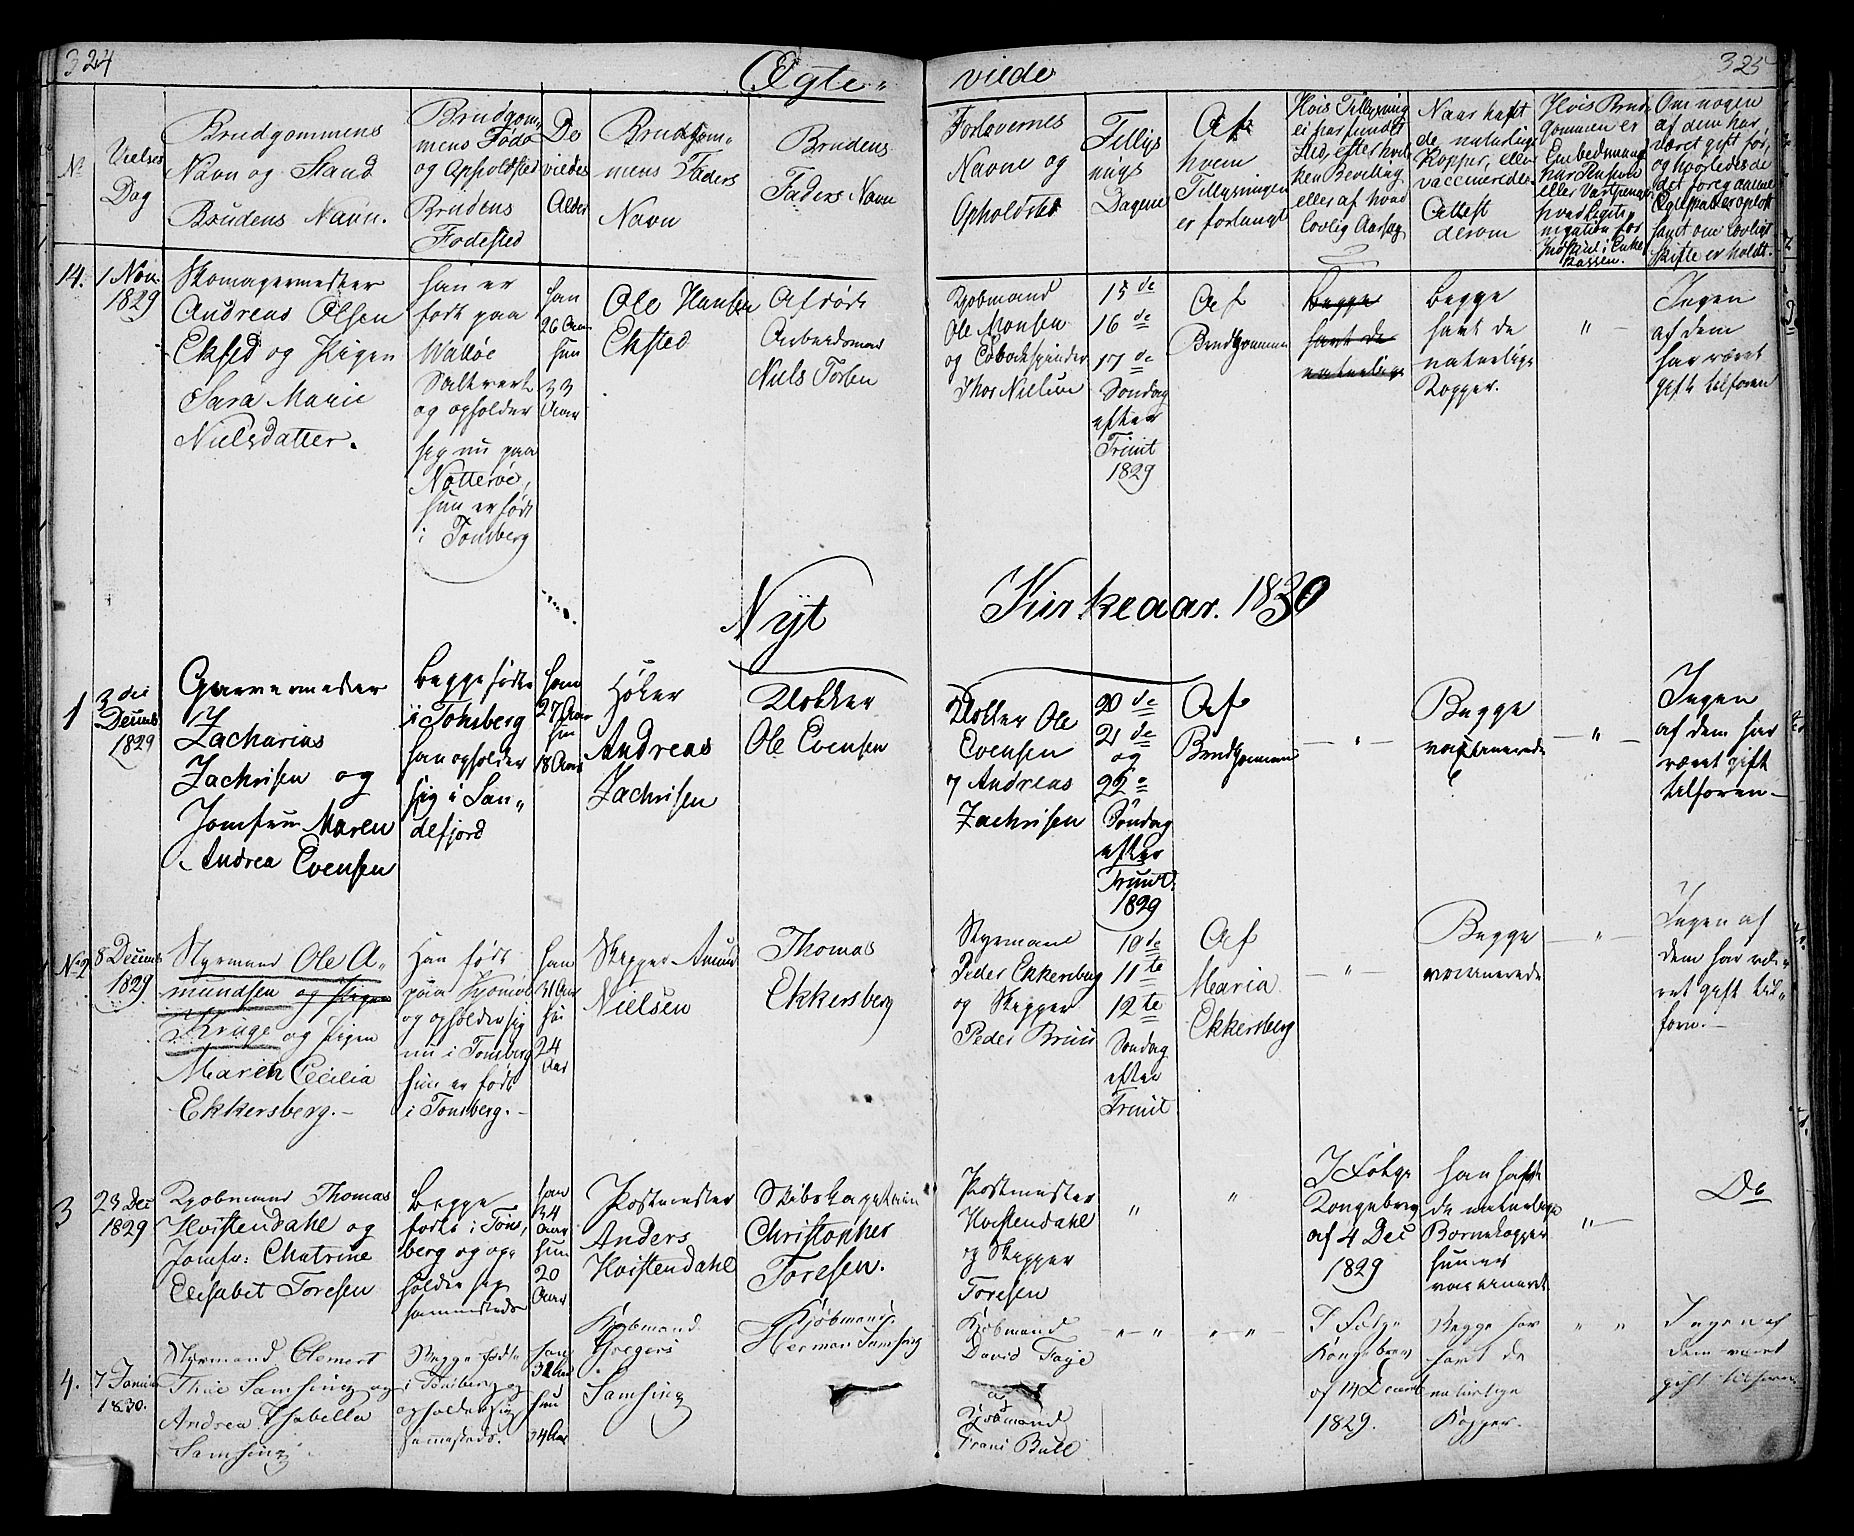 324
325
Ægte-
viede
No
Vielses
Dag
Brudgommens
Navn og Stand
Brudens Navn.
Brudgom-
mens Føde
og Opholdsted
Brudens
Fødested
De
viedes
Alder
Brudgom-
mens Faders
Navn
Brudens
Faders Navn
Forlovernes
Navne og
Opholdsted
Tillys
nings
Dagene
Af
hvem
Tillysningen
er forlangt
Hvis Tillysning
ei har fundet
Sted, efter hvil
ken Bevilling
eller af hvad
Lovlig Aarsag
Naar havt
de naturlige
Kopper, eller
vaccinerede
Attest
derom
Hvis Brud
gommen er
Embedsmand
Om nogen
af dem har
været gift før,
og hvorledes de
det foregaaende
Egteskab er opløst
samt om Lovligt
skifte er holdt.
14.
1 Nov.
1829
Skomagermester
Andreas Olsen
Eksted og Pigen
Sara Marie
Nielsdatter.
han er
født paa
Valløe
Saltverk
og opholder
sig nu paa
Nøtterøe,
hun er født
i Tonsberg
han
26 Aar
hun
33
Aar
Ole Hansen
Eksted
Afdøde
Arbeidsmand
Niels Torsen
Kjøbmand
Ole Monsen
og Tobakspinder
Thor Nielsen
15de
16de
17de
Søndag
efter
Trinit
1829
Af
Brudgommen
begge
havt de
naturlige
begge
havt de
naturlige
Kopper.
" -
Ingen
af dem
har været
gift tilforen
Nyt
Kirkeaar. 1830
1
3die
Decemb
1829
Garvermester
Zacharias
Zachrisen og
Jomfru Maren
Andrea Evensen
begge fødte
i Tonsberg
han opholder
sig i San-
defjord
han
27 Aar
hun
18 Aar
Høker
Andreas
Zachrisen
Klokker
Ole Evensen
Klokker Ole
Evensen
og Andreas
Zachrisen
20de
21de
og
22de
Søndag
efter
Trinit.
1829
Af
Brudgommen
- " -
Begge
vaccinerede
- " -
Ingen
af dem har
været gift
tilforen -
No 2
8 Decemb
1829
Styrmand Ole A-
mundsen og Pigen
Kruge og Pigen
Maren Cecilia
Ekkersberg. -
Han født
paa Hjømøe
og opholder sig
nu i Tonsberg
hun er født
i Tonsberg. -
han
31 Aar
hun
24
Aar
Skipper Amund
Nielsen
Thomas
Ekkersberg
Styrmand
Peder Ekkersberg
og Skipper
Peder Bruu
10de
11te
12te
Søndag
efter
Trinit
Af
Maria
Ekkersberg
- " -
Begge
vaccinerede
- " -
Ingen af
dem har væ-
ret gift til-
foren. -
3
23 Dec
1829
Kjøbmand Thomas
Hvistendahl og
Jomfr: Chatrine
Elisabet Toresen
begge
fødte i Tøns-
berg og op-
holder sig
sammesteds
han
34
Aar
hun
20
Aar
Postmester
Anders
Hvistendahl
Skibskapitain
Christopher
Toresen.
Postmester
Hvistendahl
og Skipper
Toresen
"
"
I Følge
Kongebrev
af 4 Dec
1829
han hafte
de naturlige
Børnekopper
hun er
vaccineret
" -
Do
4.
7 Januar
1830.
Styrmand Clement
Thue Samsing og
Andrea Isabella
Samsing.
Begge fødte
i Tonsberg og
opholder sig
sammesteds.
han
32 Aar
hun
34 Aar
Kjøbmand
Gregers
Samsing
Kjøbmand
Herman Samsing
Kjøbmand
David Faye
og
Kjøbmand
Frans Bull
" - "
" - "
I Følge
Kongebrev
af 14 Decemb
1829.
Begge har
havt de
naturlige
Kopper.
" "
Ingen af
dem været
gift tilforen